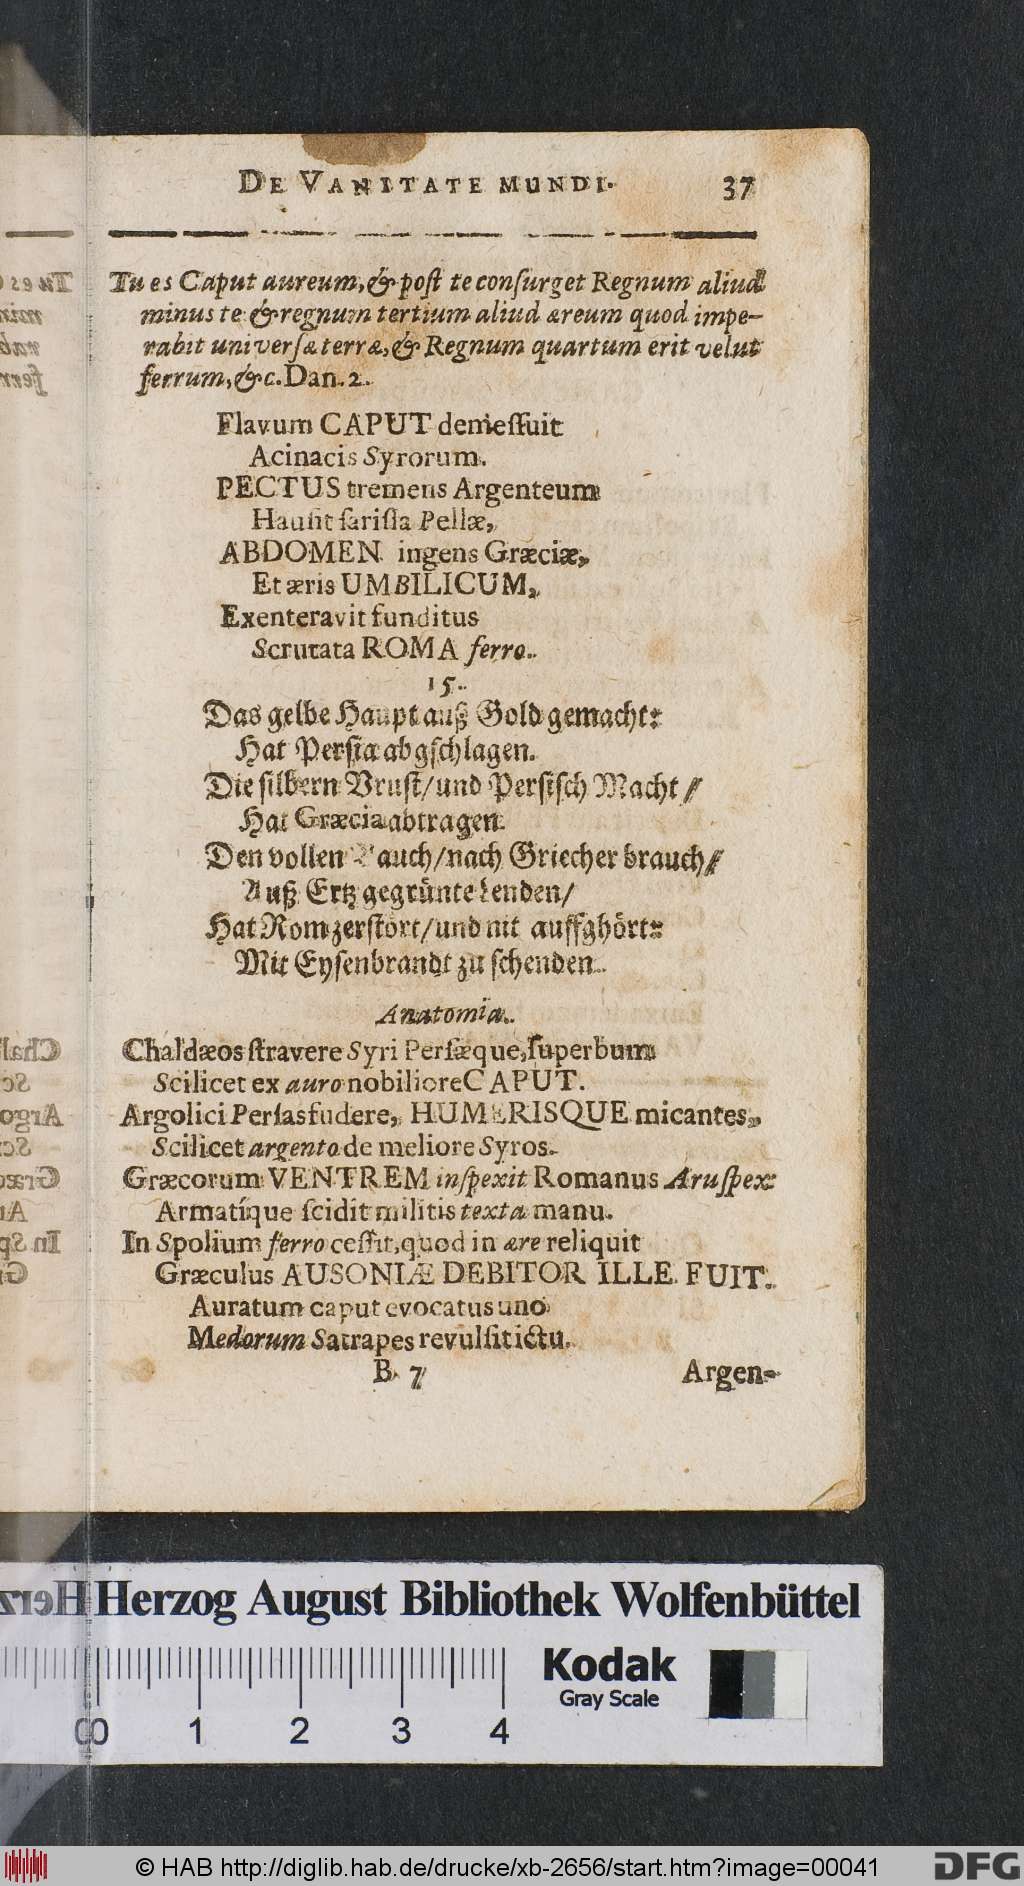 DE VANITATE MUNDI. 37
Tu es Caput aureum, & poſt te conſurget Regnum aliud
minus te & regnum tertium aliud æreum quod impe-
rabit univerſæ terræ, & Regnum quartum erit velut
ferrum, &c. Dan. 2.
Flavum CAPUT demeſſuit
Acinacis Syrorum.
PECTUS tremens Argenteum
Hauſit ſariſſa Pellæ,
ABDOMEN ingens Græciæ,
Et æris UMBILICUM,
Exenteravit funditus
Scrutata ROMA ferro.
15.
Das gelbe Haupt auß Gold gemacht:
Hat Persia abgſchlagen.
Die ſilbern Bruſt / und Perſiſch Macht /
Hat Græcia abtragen.
Den vollen Bauch / nach Griecher brauch /
Auß Ertz gegrünte Lenden /
Hat Rom zerſtört / und nit auffghört:
Mit Eyſenbrandt zu ſchenden.
Anatomia.
Chaldæos ſtravere Syri Perſæque, ſuperbum
Scilicet ex auro nobiliore CAPUT.
Argolici Perſas fudere, HUMERISQUE micantes,
Scilicet argento de meliore Syros.
Græcorum VENTREM inſpexit Romanus Aruſpex
Armatíque ſcidit militis texta manu.
In Spolium ferro ceſſit, quod in ære reliquit
Græculus AUSONIÆ DEBITOR ILLE FUIT.
Auratum caput evocatus uno
Medorum Satrapes revulſit ictu.
B 7 Argen-
Herzog August Bibliothek Wolfenbüttel
Kodak
Gray Scale
0 1 2 3 4
© HAB http://diglib.hab.de/drucke/xb-2656/start.htm?image=00041
DFG